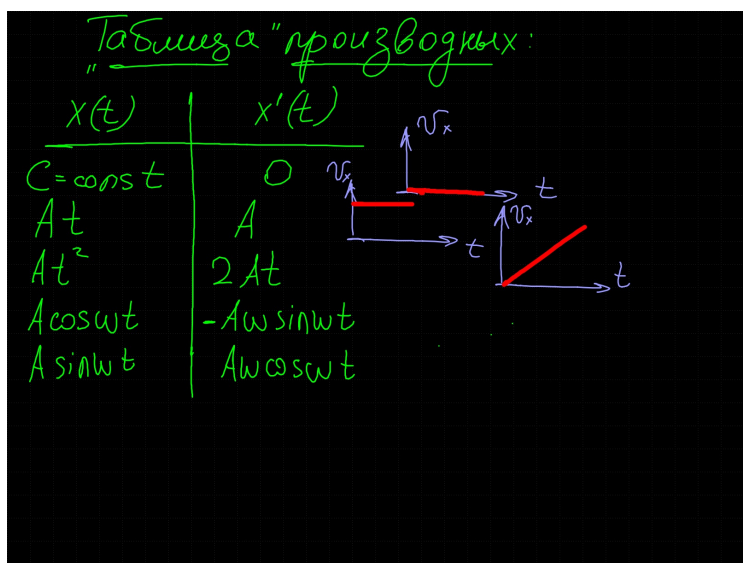 "Таблица" производных:
x(t) x'(t)
C = const 0
At A
At² 2At
A cosωt -Aω sinωt
A sinωt Aω cosωt
vₓ
t
vₓ
t
vₓ
t